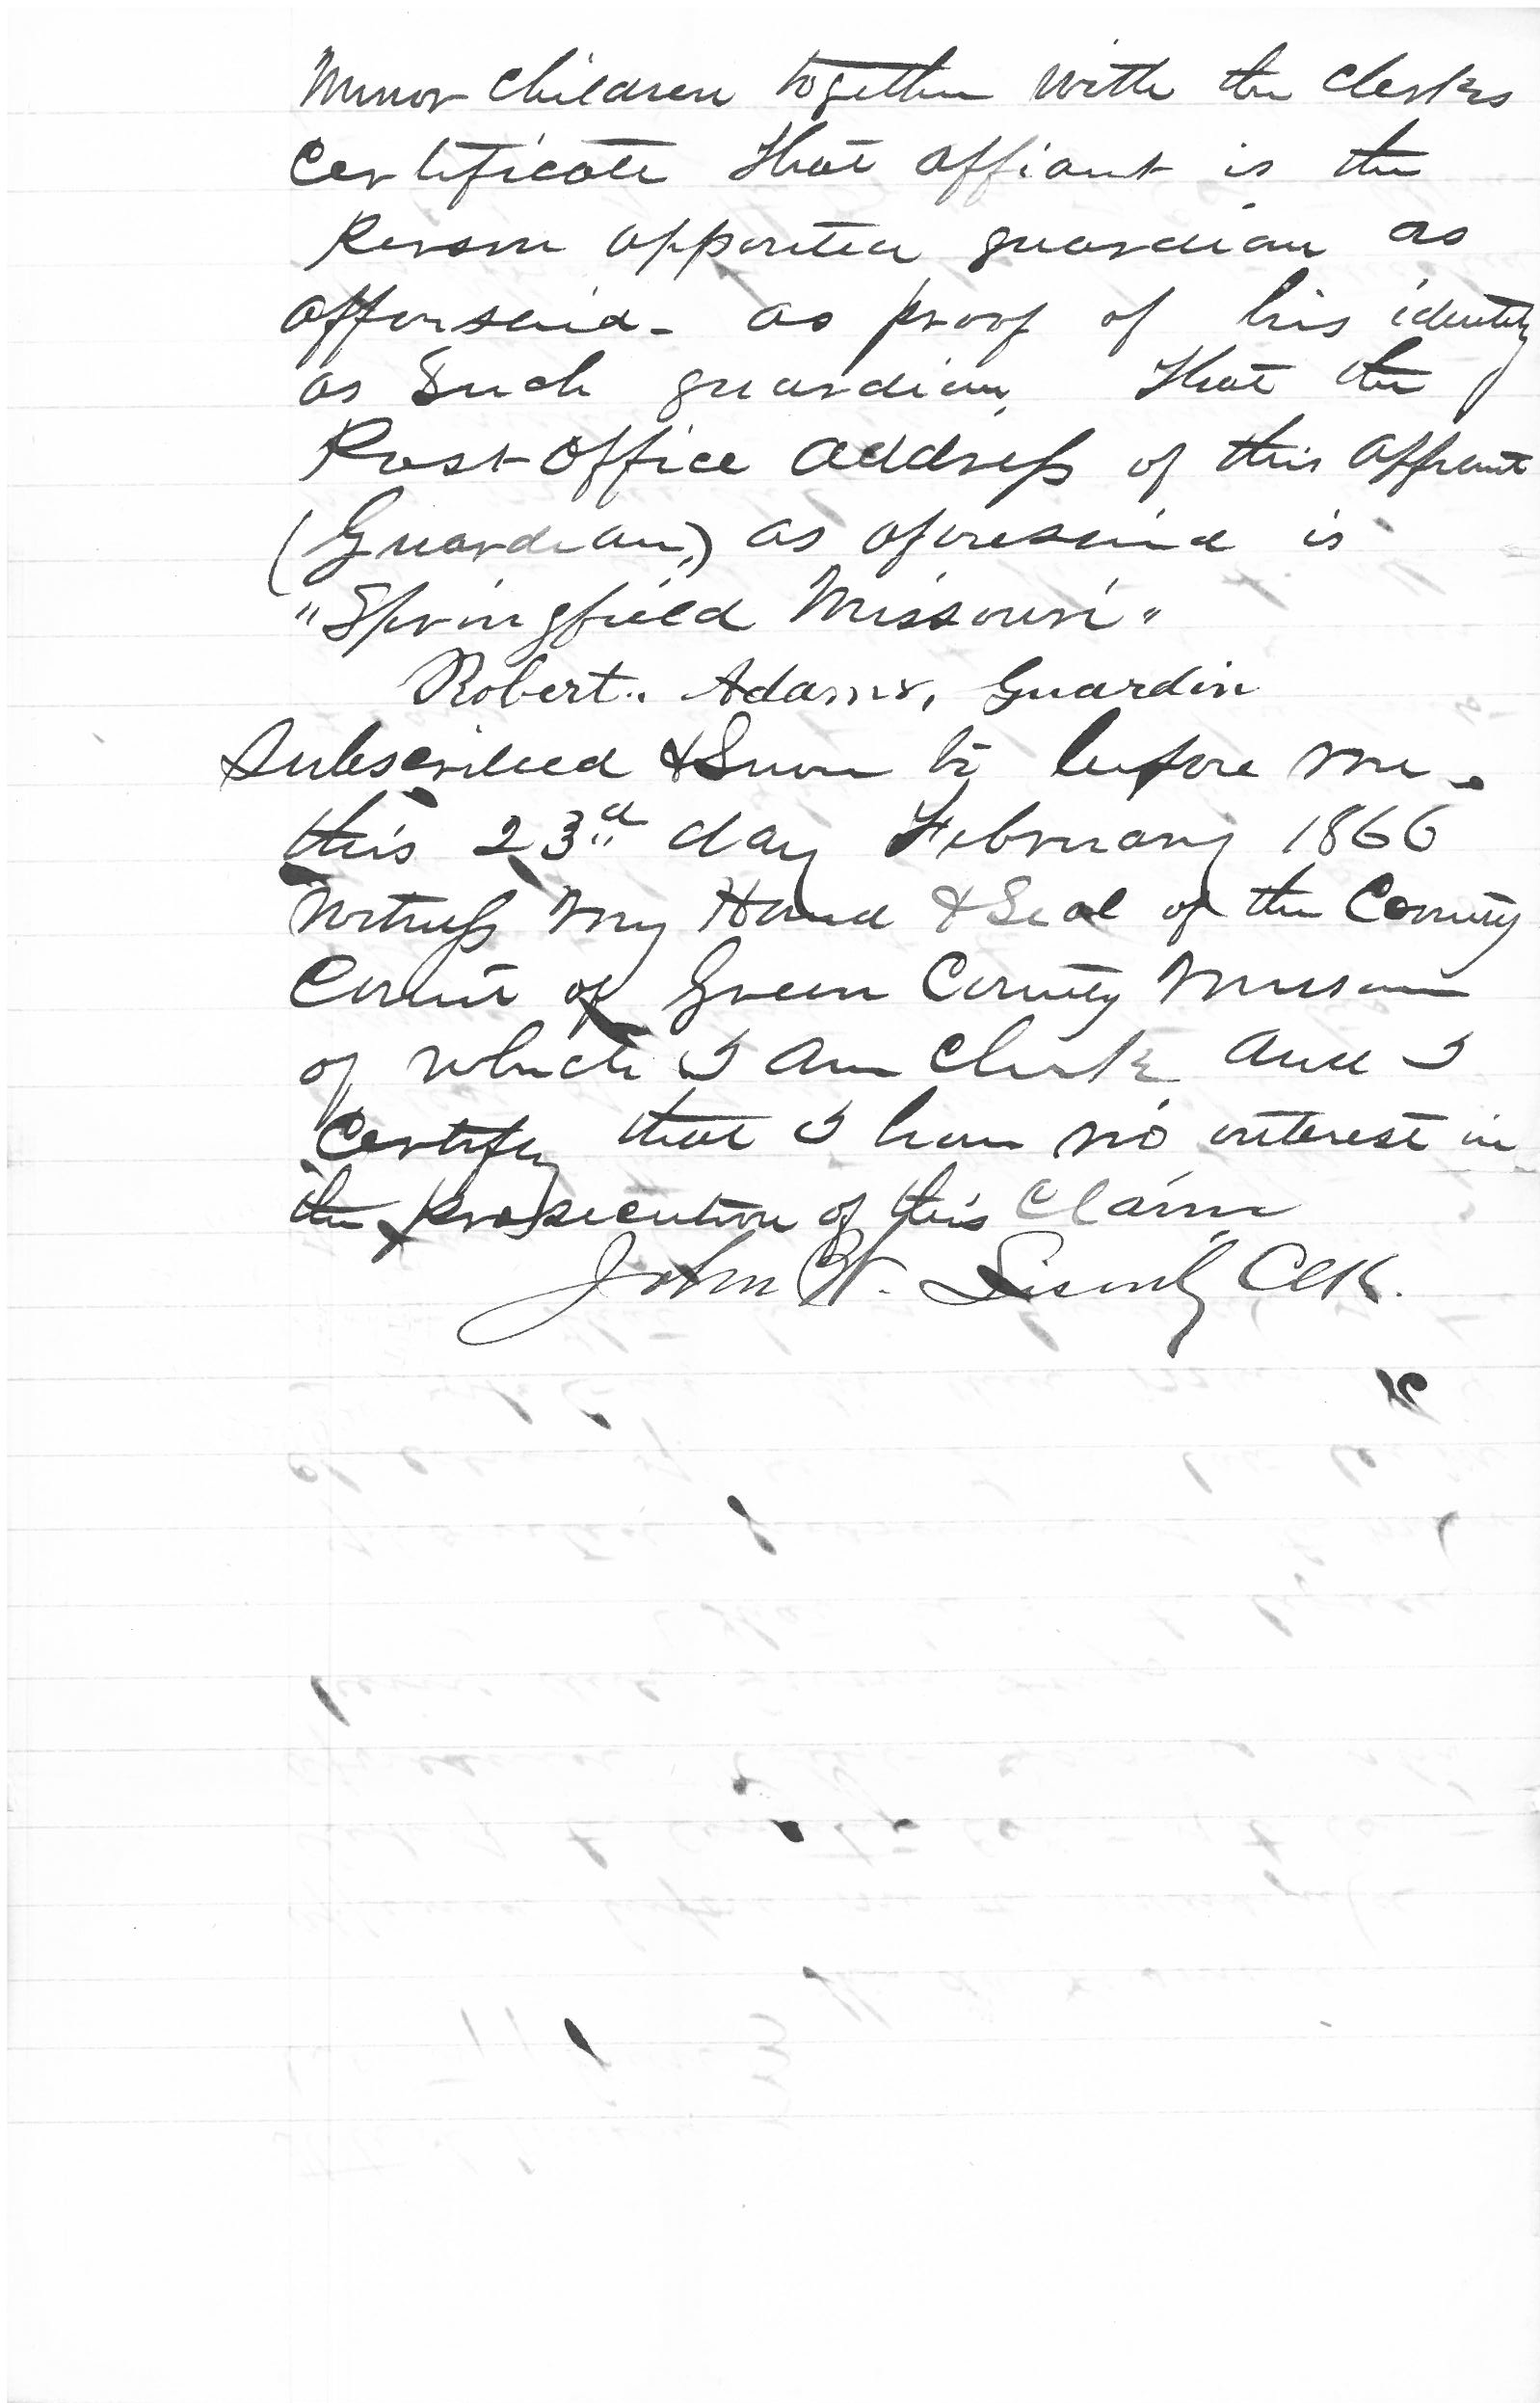 Minor children together with the clerks
Certificate that affiant is the
Person appointed guardian as
afforsaid - as proof of his identity
as Such guardian, that the
Post office address of this affiant
(Guardian,) as aforesaid is
"Springfield Missouri"
Robert.. Adams, Guardin
Subscribed & Sworn to before me.
this 23d day February 1866
Witness my Hand & Seal of the County
Court of Green County Missouri
of which I am Clerk and I
Certify that I have no interest in
the prosecution of this Claim
John W. Clk.